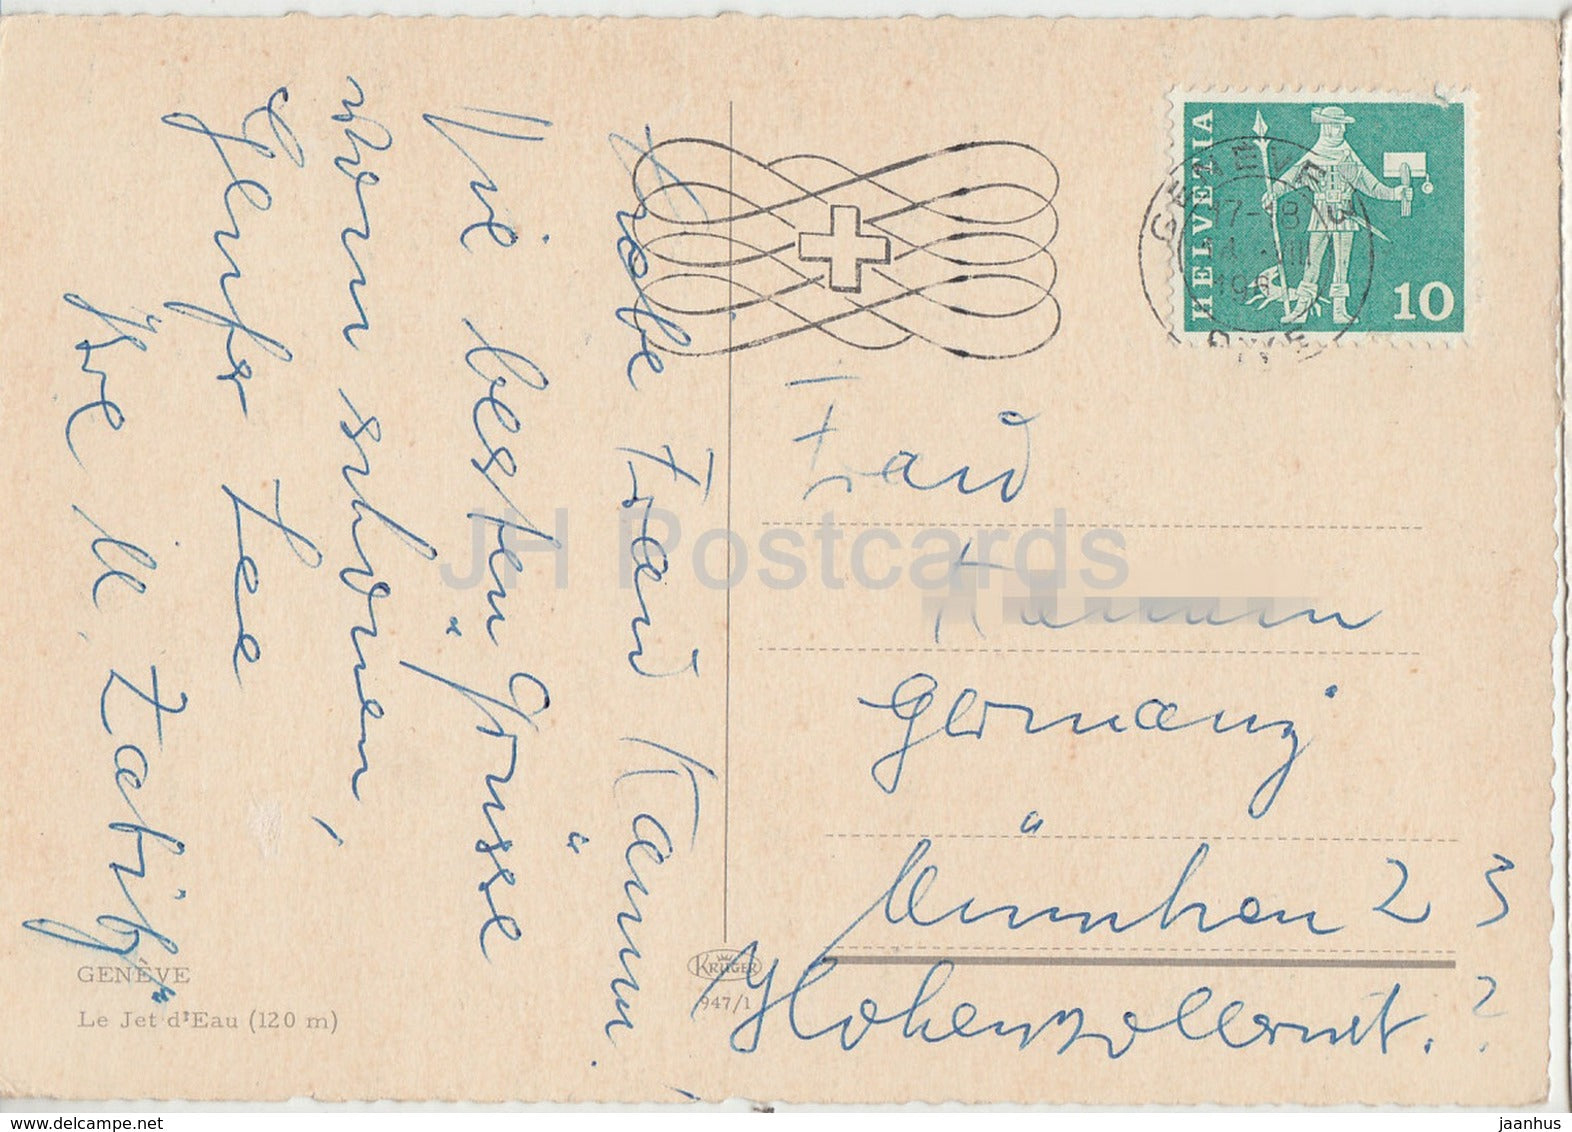 Liebe Frau Kamm
Die besten Grüsse
vom schönen
Genfs See
Ihre M.
GENÈVE
Le Jet d'Eau (120 m)
KRÜGER
947/1
HELVETIA
10
GENEVE
17-18
14. VIII
196
Frau
Germany
München 23
Hohenzollernst. ?
JH Postcards
delcampe.net
jaanhus